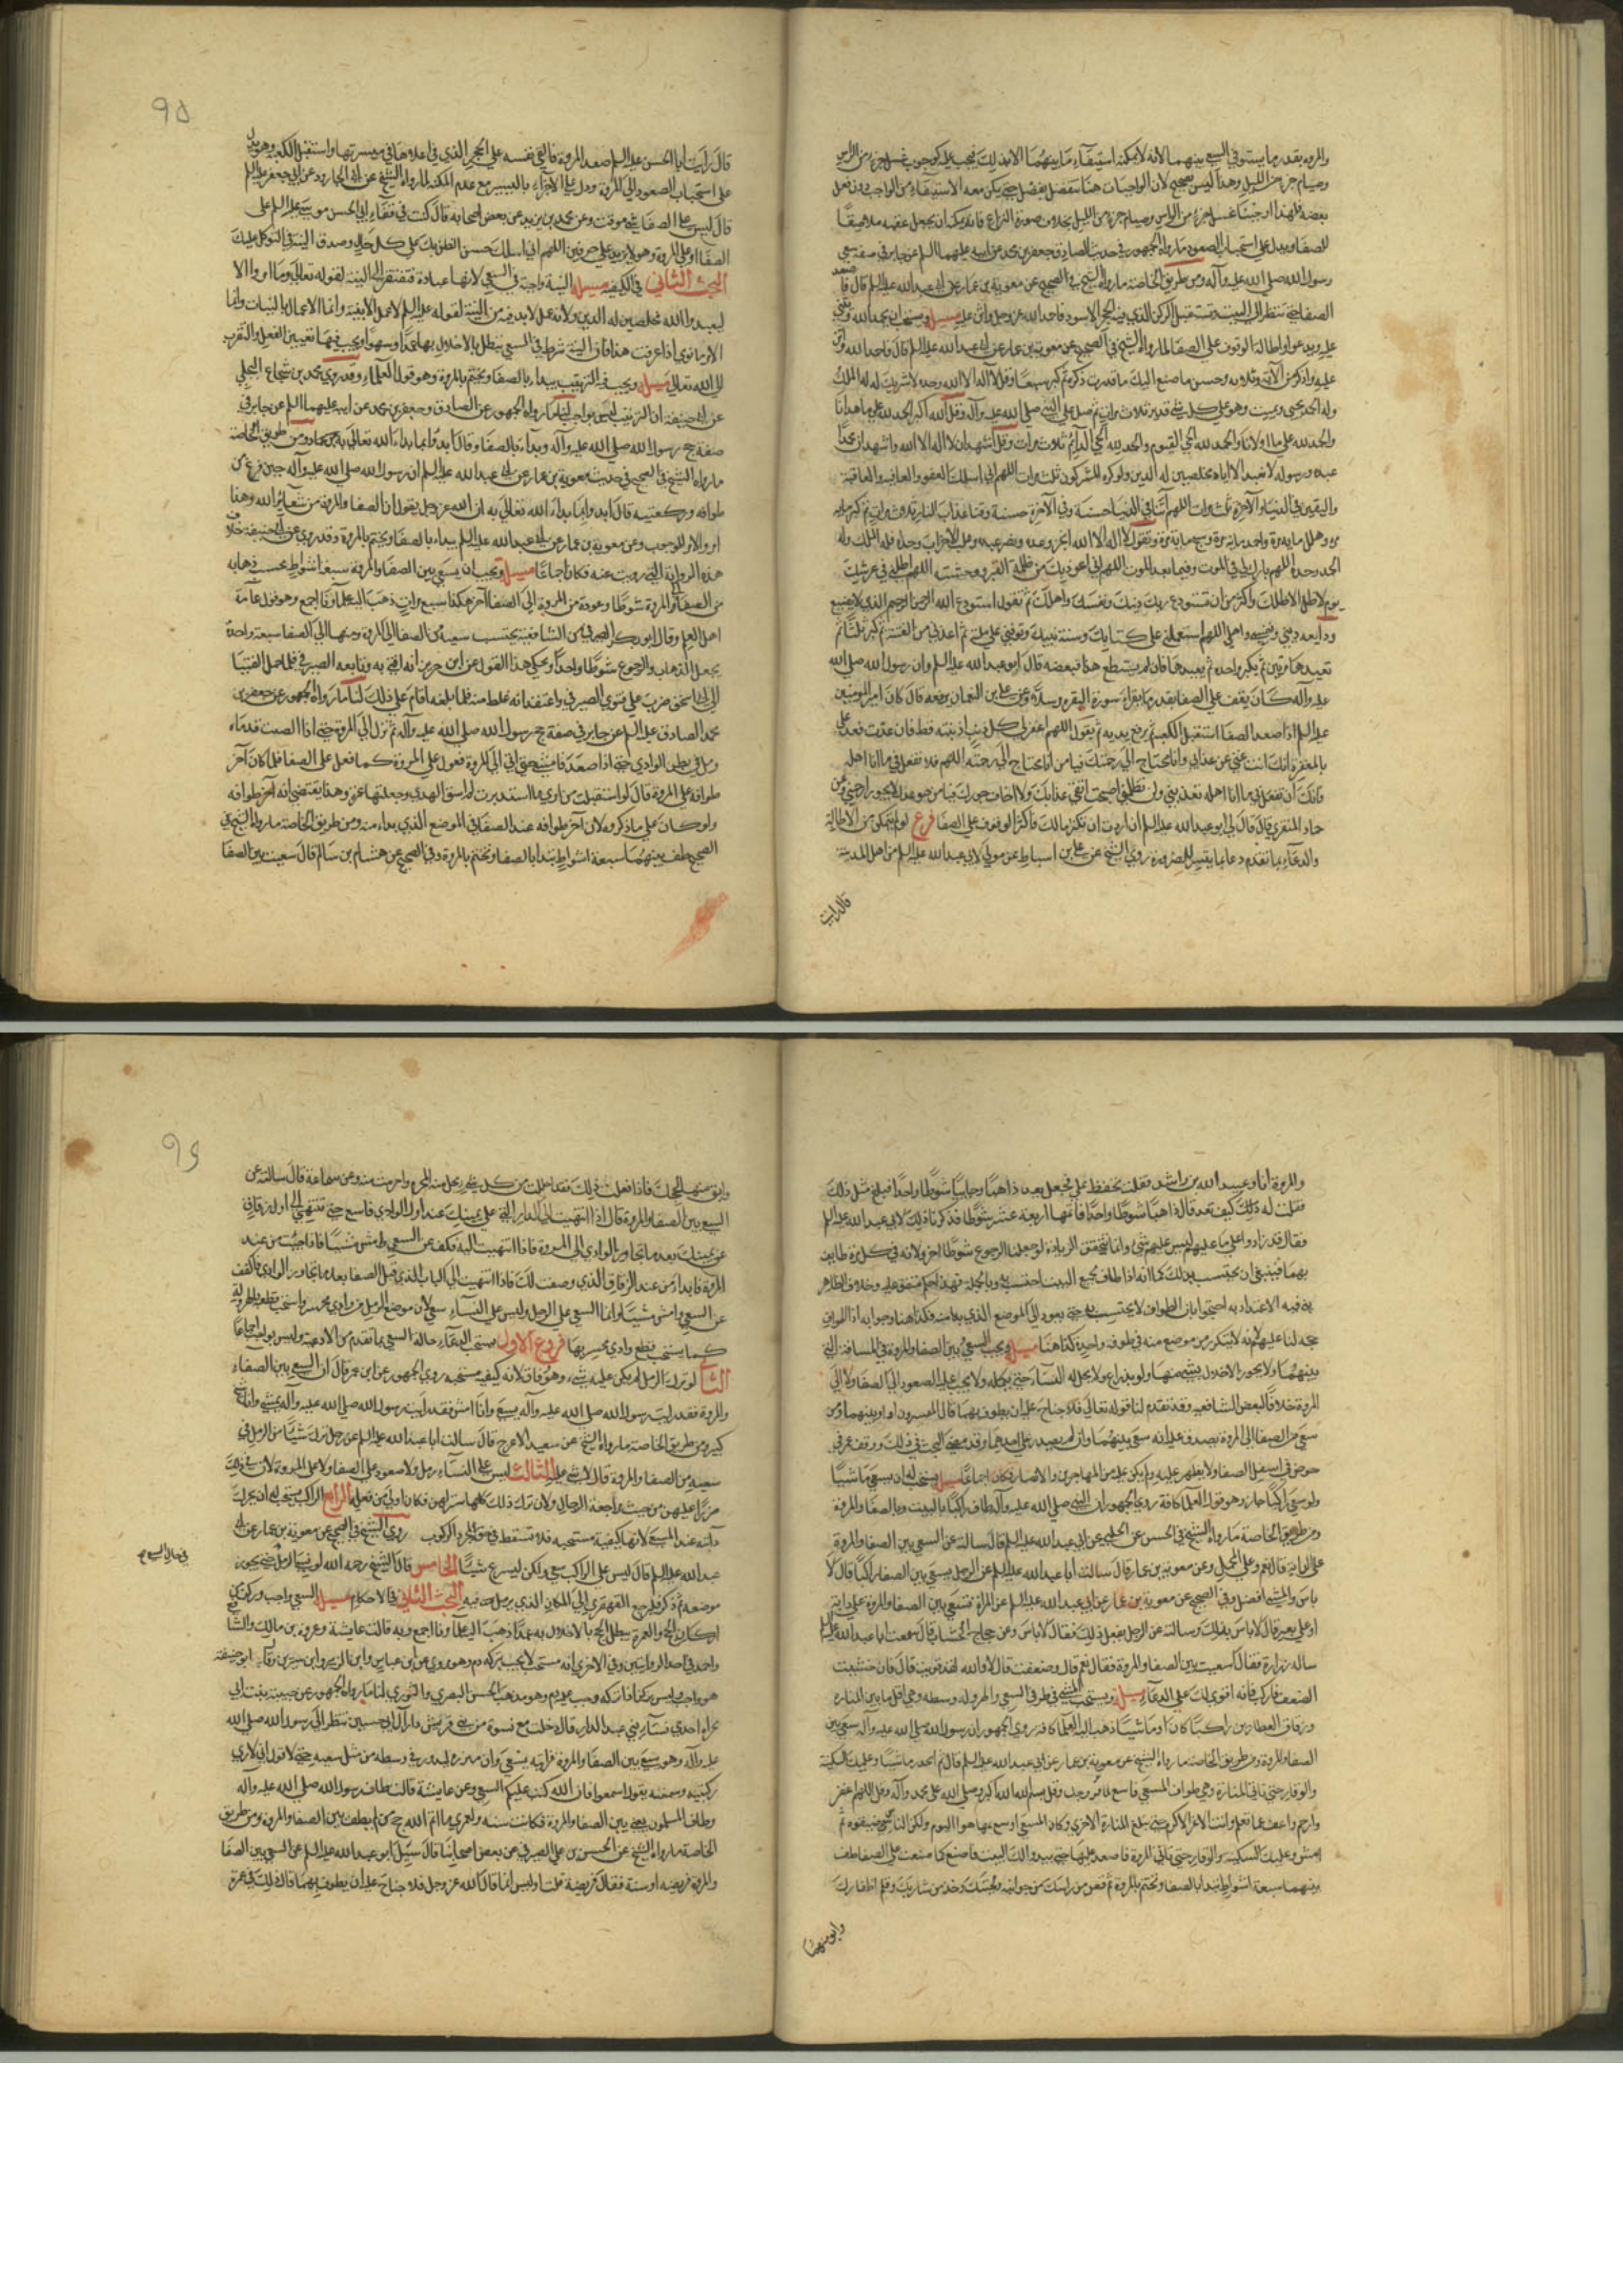 والمروة بقدر ما يستوفي السعي بينهما لانه لا يمكنه استيفاء ما بينهما الا بذلك فيجب عليه كوجوب غسل جزء من الراس
وصيام جزء من الليل وهذا ليس بصحيح لان الواجبات هنا
بعضه فلهذا اوجبنا غسل جزء من الراس وصيام جزء من الليل بخلاف صورة النزاع فانه يمكنه ان يجعل عقبه ملاصقا
للصفا ويدل على استحباب الصعود ما رواه الجمهور في حديث الصادق جعفر بن محمد عن ابيه عليهما السلم عن جابر في صفة سعي
رسول الله صلى الله عليه وآله ومن طريق الخاصة ما رواه الشيخ في الصحيح عن معوية بن عمار عن ابي عبد الله عليه السلم قال
الصفا حتى تنظر الى البيت وتستقبل الركن الذي فيه الحجر الاسود فاحمد الله عز وجل واثن عليه مسئلة ويستحب ان يحمد الله ويثني
عليه ويدعو اواطالة الوقوف على الصفا لما رواه الشيخ في الصحيح عن معوية بن عمار عن ابي عبد الله عليه السلم قال فاحمد الله واثن
عليه واذكر من آلائه وبلائه وحسن ما صنع اليك ما قدرت
وله الحمد يحيي ويميت وهو على كل شئ قدير ثلاث مرات ثم صل على النبي صلى الله عليه وآله وقل الله اكبر الحمد لله على ما هدانا
والحمد لله على ما اولانا والحمد لله الحي القيوم والحمد لله الحي الدائم ثلاث مرات وقل اشهد ان لا اله الا الله واشهد ان محمدا
عبده ورسوله لا نعبد الا اياه مخلصين له الدين ولو كره المشركون ثلث مرات اللهم اني اسئلك العفو والعافية
واليقين في الدنيا والآخرة ثلث مرات اللهم آتنا في الدنيا حسنة وفي الآخرة حسنة وقنا عذاب النار ثلث مرات ثم كبر مائة
مرة وهلل مائة مرة واحمد مائة مرة وسبح مائة مرة وتقول لا اله الا الله انجز وعده ونصر عبده وغلب الاحزاب وحده فله الملك وله
الحمد وحده اللهم بارك لي في الموت وفيما بعد الموت اللهم اني اعوذ بك من ظلمة القبر ووحشته اللهم اظلني في عرشك
يوم لا ظل الا ظلك واكثر من ان تستودع ربك دينك ونفسك واهلك ثم تقول استودع الله الرحمن الرحيم الذي لا يضيع
ودايعه ديني ونفسي واهلي اللهم استعملني على كتابك وسنة نبيك وتوفني على ملته ثم اعذني من الفتنة ثم تكبر ثلثا ثم
تعيدها مرتين ثم يكبر واحدة ثم يعيدها فان لم يستطع هذا فبعضه قال ابو عبد الله عليه السلم وان رسول الله صلى الله
عليه وآله كان يقف على الصفا بقدر ما يقرا سورة البقرة وعن علي بن النعمان يرفعه قال كان امير المومنين
عليه السلم اذا صعد الصفا استقبل الكعبة ثم يرفع يديه ثم يقول اللهم اغفر لي كل ذنب اذنبته قط فان عدت فعد علي
بالمغفرة انك انت غني عن عذابي وانا محتاج الى رحمتك فيا من انا محتاج الى رحمته اللهم فلا تفعل بي ما انا اهله
فانك ان تفعل بي ما انا اهله تعذبني ولن تظلمني اصبحت اتقي عذابك ولا اخاف جورك فيا من هو عدل لا يجور ارحمني وعن
حماد المنقري قال قال لي ابو عبد الله عليه السلم ان اردت ان تكثر مالك فاكثر الوقوف على الصفا فرع لو لم يتمكن من الاطالة
والدعاء بما تقدم دعا بما يتيسر روى الشيخ عن علي بن اسباط عن مولى لابي عبد الله عليه السلم من اهل المدينة
قال رايت
٩٥
قال رايت ابا الحسن عليه السلم صعد المروة فالقى نفسه على الحجر الذي في اعلاها في ميسرتها واستقبل الكعبة وهو يدل
على استحباب الصعود الى المروة ويدل على الاجزاء باليسير مع عدم المكنة لما رواه الشيخ عن ابي الجارود عن ابي جعفر عليه السلم
قال ليس على الصفا شئ موقت وعن محمد بن يزيد عن بعض اصحابه قال كنت في قفاء ابي الحسن موسى عليه السلم على
الصفا او على المروة وهو لا يزيد على حرفين اللهم اني اسئلك حسن الظن بك على كل حال وصدق النية في التوكل عليك
البحث الثاني في الكيفية مسئلة النية واجبة في السعي لانها عبادة فتفتقر الى النية لقوله تعالى وما امروا الا
ليعبدوا الله مخلصين له الدين ولانه عمل لا بد فيه من النية لقوله عليه السلم لا عمل الا بنية وانما الاعمال بالنيات وانما
لامرء ما نوى اذا عرفت هذا فان النية شرط في السعي يبطل بالاخلال بها عمدا وسهوا ويجب فيها تعيين الفعل والتقرب
الى الله تعالى مسئلة ويجب فيه الترتيب يبداء بالصفا ويختم بالمروة وهو قول العلماء وقد روى محمد بن شجاع البجلي
عن ابي حنيفة ان الترتيب ليس بواجب لنا ما رواه الجمهور عن الصادق جعفر بن محمد عن ابيه عليهما السلم عن جابر في
صفة حج رسول الله صلى الله عليه وآله وبداء بالصفا وقال ابدؤا بما بداء الله تعالى به ومن طريق الخاصة
ما رواه الشيخ في الصحيح في حديث معوية بن عمار عن ابي عبد الله عليه السلم ان رسول الله صلى الله عليه وآله حين فرغ من
طوافه وركعتيه قال ابدوا بما بداء الله تعالى به ان الله عز وجل يقول ان الصفا والمروة من شعائر الله وهذا
امر والامر للوجوب وعن معوية بن عمار عن ابي عبد الله عليه السلم يبداء بالصفا ويختم بالمروة وقد روي عن ابي حنيفة خلاف
هذه الرواية التي رويت عنه فكان اجماعا مسئلة ويجب ان يسعى بين الصفا والمروة سبعة اشواط يحسب ذهابه
من الصفا الى المروة شوطا وعوده من المروة الى الصفا آخر هكذا سبع مرات ذهب اليه علماؤنا اجمع وهو قول عامة
اهل العلم وقال ابو بكر الصيرفي من الشافعية يحتسب سعيه من الصفا الى المروة ومنها الى الصفا سبعة واحدة
يجعل الذهاب والرجوع شوطا واحدا ويحكى هذا القول عن ابن جرير انه افتى به وتابعه الصيرفي فلما حمل الفتيا
الى ابي اسحق ضرب على فتوى الصيرفي واعتقد انه غلط منه فلما بلغه اقام على ذلك لنا ما رواه الجمهور عن جعفر بن
محمد الصادق عليه السلم عن جابر في صفة حج رسول الله صلى الله عليه وآله ثم نزل الى المروة حتى اذا انصبت قدماه
رمل في بطن الوادي حتى اذا صعد قام مشى حتى اتى المروة ففعل على المروة كما فعل على الصفا فلما كان آخر
طوافه على المروة قال لو استقبلت من امري ما استدبرت لم اسق الهدي وجعلتها عمرة وهذا يقتضي انه آخر طوافه
ولو كان على ما ذكروه لكان آخر طوافه عند الصفا في الموضع الذي بداء منه ومن طريق الخاصة ما رواه الشيخ في
الصحيح طف بينهما سبعة اشواط تبدا بالصفا وتختم بالمروة وفي الصحيح عن هشام بن سالم قال سعيت بين الصفا
والمروة انا وعبيد الله بن راشد فقلت تحفظ علي فجعل يعد ذاهبا وجائيا شوطا واحدا فبلغ مثل ذلك
فقلت له ذلك كيف تعد قال ذاهبا شوطا واحدا فاتممنا اربعة عشر شوطا فذكرنا ذلك لابي عبد الله عليه السلم
فقال قد زادوا على ما عليهم ليس عليهم شئ وانما تتحقق الزيادة لو جعلنا الرجوع شوطا آخر ولانه في كل مرة طايف
بهما فينبغي ان يحتسب بذلك كما انه اذا طاف بجميع البيت احتسب به
احتجوا بان الطواف لا يحتسب به حتى يعود الى الموضع الذي بداء منه فكذا هنا وجوابه
حجة لنا عليهم لانه لا يتكرر من موضع منه في طوفة واحدة كذا هنا مسئلة ويجب السعي بين الصفا والمروة في المسافة التي
بينهما ولا يجوز الاخلال بشئ منها ولو بذراع ولا يحل له النساء حتى يكمله ولا يجب عليه الصعود الى الصفا ولا الى
المروة خلافا لبعض الشافعية وقد تقدم لنا قوله تعالى فلا جناح عليه ان يطوف بهما قال المفسرون اراد بينهما ومن
سعى من الصفا الى المروة يصدق عليه انه سعى بينهما وان لم يصعد عليهما وقد مضى البحث في ذلك ووقف عمر في
حوض في اسفل الصفا ولا يظهر عليه ولم ينكر عليه من المهاجرين والانصار فكان اجماعا مسئلة يستحب له ان يسعى ماشيا
ولو سعى راكبا جاز وهو قول العلماء كافة روى الجمهور ان النبي صلى الله عليه وآله طاف راكبا بالبيت وبالصفا والمروة
ومن طريق الخاصة ما رواه الشيخ في الحسن عن الحلبي عن ابي عبد الله عليه السلم قال سالته عن السعي بين الصفا والمروة
على الدابة قال نعم وعلى المحمل وعن معوية بن عمار قال سالت ابا عبد الله عليه السلم عن الرجل يسعى بين الصفا راكبا قال لا
باس والمشي افضل وفي الصحيح عن معوية بن عمار عن ابي عبد الله عليه السلم عن المراة تسعى بين الصفا والمروة على دابة
او على بعير قال لا باس بذلك وسالته عن الرجل يفعل ذلك فقال لا باس وعن حجاج الخشاب قال سمعت ابا عبد الله عليه السلم
ساله زرارة فقال اسعيت بين الصفا والمروة فقال نعم قال وضعفت قال لا والله لقد قويت قال فان خشيت
الضعف فاركب فانه اقوى لك على الدعاء مسئلة ويستحب المشي في طرفي السعي والهرولة وسطه وهي اقل ما بين المنارة
وزقاق العطارين راكبا كان او ماشيا ذهب اليه العلماء كافة روى الجمهور ان رسول الله صلى الله عليه وآله سعى بين
الصفا والمروة ومن طريق الخاصة ما رواه الشيخ عن معوية بن عمار عن ابي عبد الله عليه السلم قال ثم انحدر ماشيا وعليك السكينة
والوقار حتى تاتي المنارة وهي طرف المسعى فاسع ملاء فروجك وقل بسم الله الله اكبر وصلى الله على محمد وآله وقل اللهم اغفر
وارحم واعف عما تعلم وانت الاعز الاكرم حتى تبلغ المنارة الاخرى وكان المسعى اوسع مما هو اليوم ولكن الناس ضيقوه ثم
امش وعليك السكينة والوقار حتى تاتي المروة فاصعد عليها حتى يبدو لك البيت فاصنع كما صنعت على الصفا وطف
بينهما سبعة اشواط تبدا بالصفا وتختم بالمروة ثم قص من راسك من جوانبه ولحيتك وخذ من شاربك وقلم اظفارك
وابق منها
٩٦
وابق منها لحجك فاذا فعلت ذلك فقد احللت من كل شئ يحل منه المحرم واحرمت منه وعن سماعة قال سالته عن
السعي بين الصفا والمروة قال اذا انتهيت الى الدار التي على يمينك عند اول الوادي فاسع حتى تنتهي الى اول زقاق
عن يمينك بعد ما تجاوز الوادي الى المروة فاذا انتهيت اليه فكف عن السعي وامش مشيا فاذا جئت من عند
المروة فابدا من عند الزقاق الذي وصفت لك فاذا انتهيت الى الباب الذي قبل الصفا بعد ما تجاوز الوادي فاكفف
عن السعي وامش مشيا وانما السعي على الرجال وليس على النساء سعي لان موضع الرمل من وادي محسر
كما يستحب قطع وادي محسر بها فروع الاول يستحب الدعاء حالة السعي بما تقدم من الادعية وليس بواجب اجماعا
الثاني لو ترك الرمل لم يكن عليه شئ وهو وفاق لانه كيفية مستحبة روى الجمهور عن ابن عمر قال ان اسع بين الصفا
والمروة فقد رايت رسول الله صلى الله عليه وآله يسعى وان امش فقد رايت رسول الله صلى الله عليه وآله يمشي وانا شيخ
كبير ومن طريق الخاصة ما رواه الشيخ عن سعيد الاعرج قال سالت ابا عبد الله عليه السلم عن رجل ترك شيئا من الرمل في
سعيه بين الصفا والمروة قال لا شئ عليه الثالث ليس على النساء رمل ولا صعود على الصفا ولا على المروة لان في ذلك
ضررا عليهن من حيث مزاحمة الرجال ولان ترك ذلك كله استر لهن فكان اولى من فعله الرابع الراكب يستحب له ان يحرك
دابته عند المسعى لانها كيفية مستحبة فلا تسقط روى الشيخ في الصحيح عن معوية بن عمار عن ابي
عبد الله عليه السلم قال ليس على الراكب سعي ولكن ليسرع شيئا الخامس قال الشيخ رحمه الله لو نسي الرمل حتى يجوز
موضعه ثم ذكر فليرجع القهقرى الى المكان الذي يرمل فيه البحث الثاني في الاحكام مسئلة السعي واجب وركن من
اركان الحج والعمرة يبطل الحج بالاخلال به عمدا ذهب اليه علماؤنا اجمع وبه قالت عايشة وعروة بن مالك والشافعي
واحمد في احدى الروايتين وفي الاخرى انه مستحب لا يجب بتركه دم وهو مروي عن ابن عباس وابن الزبير وابن سيرين وقال ابو حنيفة
هو واجب وليس بركن اذا تركه وجب عليه دم وهو مذهب الحسن البصري والثوري لنا ما رواه الجمهور عن حبيبة بنت ابي
تجراه احدى نساء بني عبد الدار قالت دخلت مع نسوة من قريش دار آل ابي حسين ننظر الى رسول الله صلى الله
عليه وآله وهو يسعى بين الصفا والمروة فرايته يسعى وان مئزره ليدور في وسطه من شدة سعيه حتى لاقول اني لارى
ركبتيه وسمعته يقول اسمعوا فان الله كتب عليكم السعي وعن عايشة قالت طاف رسول الله صلى الله عليه وآله
وطاف المسلمون يعني بين الصفا والمروة فكانت سنة ولعمري ما اتم الله حج من لم يطف بين الصفا والمروة ومن طريق
الخاصة ما رواه الشيخ عن الحسن بن علي الصيرفي عن بعض اصحابنا قال سئل ابو عبد الله عليه السلم عن السعي بين الصفا
والمروة فريضة او سنة فقال فريضة قلت اوليس انما قال الله عز وجل فلا جناح عليه ان يطوف بهما قال ذلك في عمرة